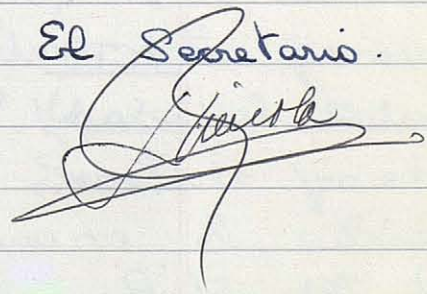 El Secretario.